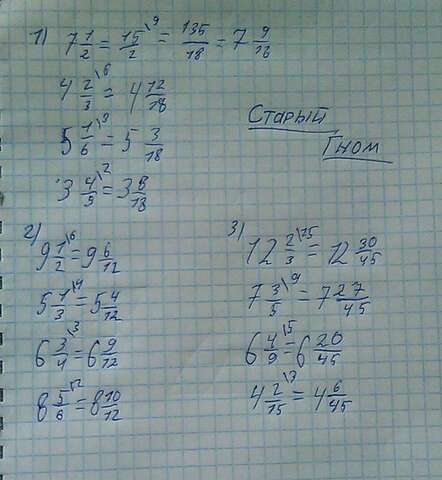 1) 7 1/2 \9 = 15/2 = 135/18 = 7 9/18
4 2/3 \6 = 4 12/18
5 1/6 \3 = 5 3/18
3 4/9 \2 = 3 8/18
Старый
Гном
2) 9 1/2 \6 = 9 6/12
5 1/3 \4 = 5 4/12
6 3/4 \3 = 6 9/12
8 5/6 \2 = 8 10/12
3) 12 2/3 \15 = 12 30/45
7 3/5 \9 = 7 27/45
6 4/9 \5 = 6 20/45
4 2/15 \3 = 4 6/45